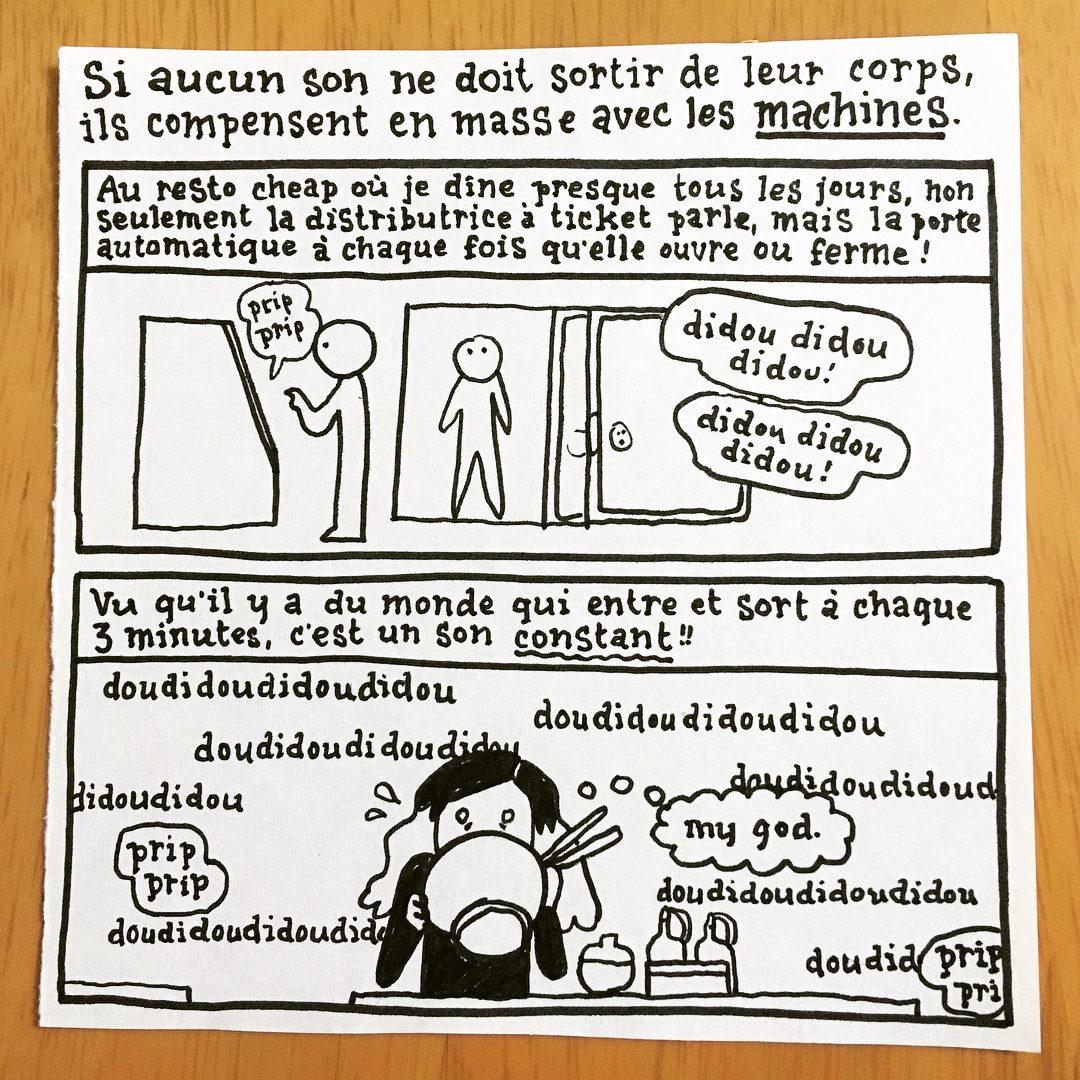 Si aucun son ne doit sortir de leur corps,
ils compensent en masse avec les machines.
Au resto cheap où je dîne presque tous les jours, non
seulement la distributrice à ticket parle, mais la porte
automatique à chaque fois qu'elle ouvre ou ferme !
prip
prip
didou didou
didou!
didou didou
didou!
Vu qu'il y a du monde qui entre et sort à chaque
3 minutes, c'est un son constant !!
doudidoudidoudidou
doudidoudidoudidou
doudidoudidoudidou
doudidoudidoud
didoudidou
my god.
prip
prip
doudidoudidoudidou
doudidoudidoudido
doudid
prip
pri